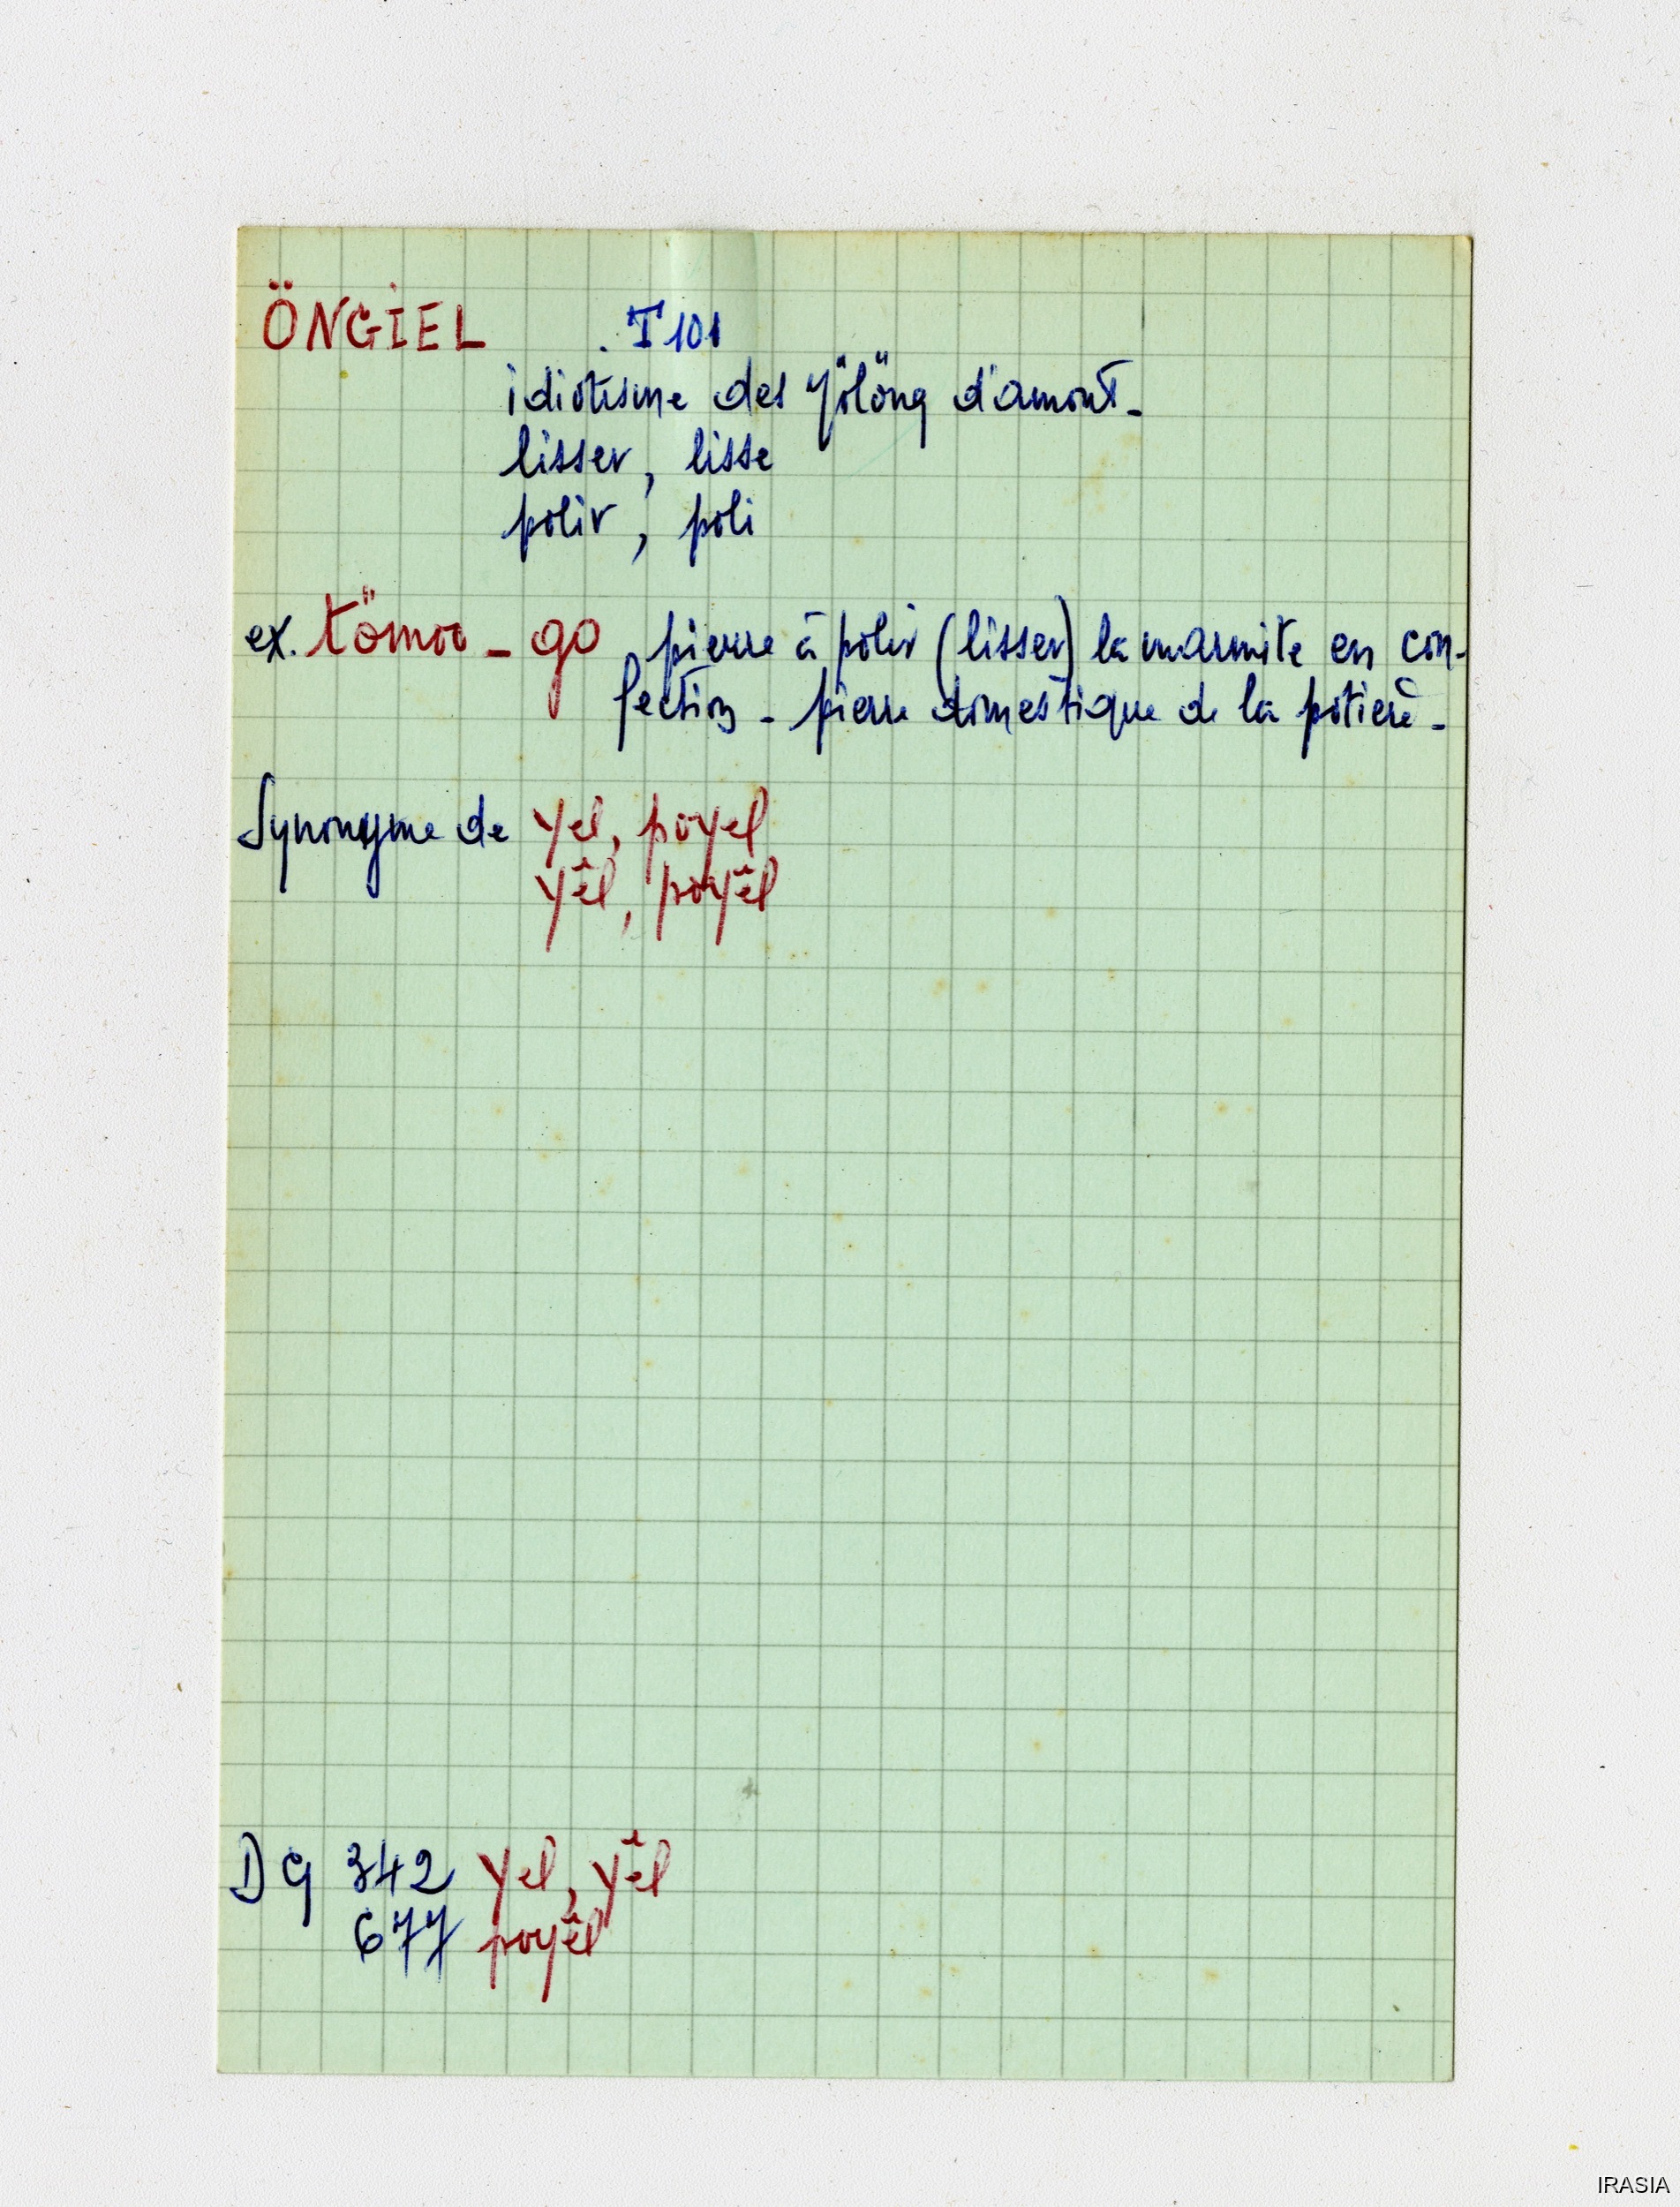 ÖNGIEL . T 101
idiotisme des Yölöng d'amont -
lisser, lisse
polir, poli
ex. tömoo - go pierre à polir (lisser) la marmite en con-
fection - pierre domestique de la potière -
Synonyme de yel, poyel
yêl, poyêl
DG 342 yel, yêl
677 poyêl
IRASIA